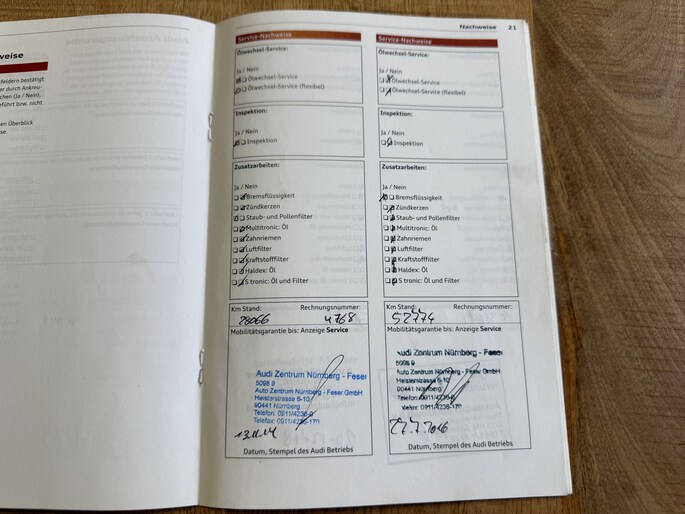 Nachweise 21
weise
feldern bestätigt
er durch Ankreu-
chen (Ja / Nein),
eführt bzw. nicht
en Überblick
se.
Service-Nachweise
Ölwechsel-Service:
Ja / Nein
Ölwechsel-Service
Ölwechsel-Service (flexibel)
Inspektion:
Ja / Nein
Inspektion
Zusatzarbeiten:
Ja / Nein
Bremsflüssigkeit
Zündkerzen
Staub- und Pollenfilter
Multitronic: Öl
Zahnriemen
Luftfilter
Kraftstofffilter
Haldex: Öl
S tronic: Öl und Filter
Km Stand: Rechnungsnummer:
28066 4768
Mobilitätsgarantie bis: Anzeige Service
Audi Zentrum Nürnberg - Feser
5098 9
Auto Zentrum Nürnberg - Feser GmbH
Heisterstrasse 6-10
90441 Nürnberg
Telefon: 0911/4236-0
Telefax: 0911/4236-171
Datum, Stempel des Audi Betriebs
Service-Nachweise
Ölwechsel-Service:
Ja / Nein
Ölwechsel-Service
Ölwechsel-Service (flexibel)
Inspektion:
Ja / Nein
Inspektion
Zusatzarbeiten:
Ja / Nein
Bremsflüssigkeit
Zündkerzen
Staub- und Pollenfilter
Multitronic: Öl
Zahnriemen
Luftfilter
Kraftstofffilter
Haldex: Öl
S tronic: Öl und Filter
Km Stand: Rechnungsnummer:
52774
Mobilitätsgarantie bis: Anzeige Service
Audi Zentrum Nürnberg - Feser
5098 9
Auto Zentrum Nürnberg - Feser GmbH
Heisterstrasse 6-10
90441 Nürnberg
Telefon: 0911/4236-0
0911/4236-171
27.7.2016
Datum, Stempel des Audi Betriebs